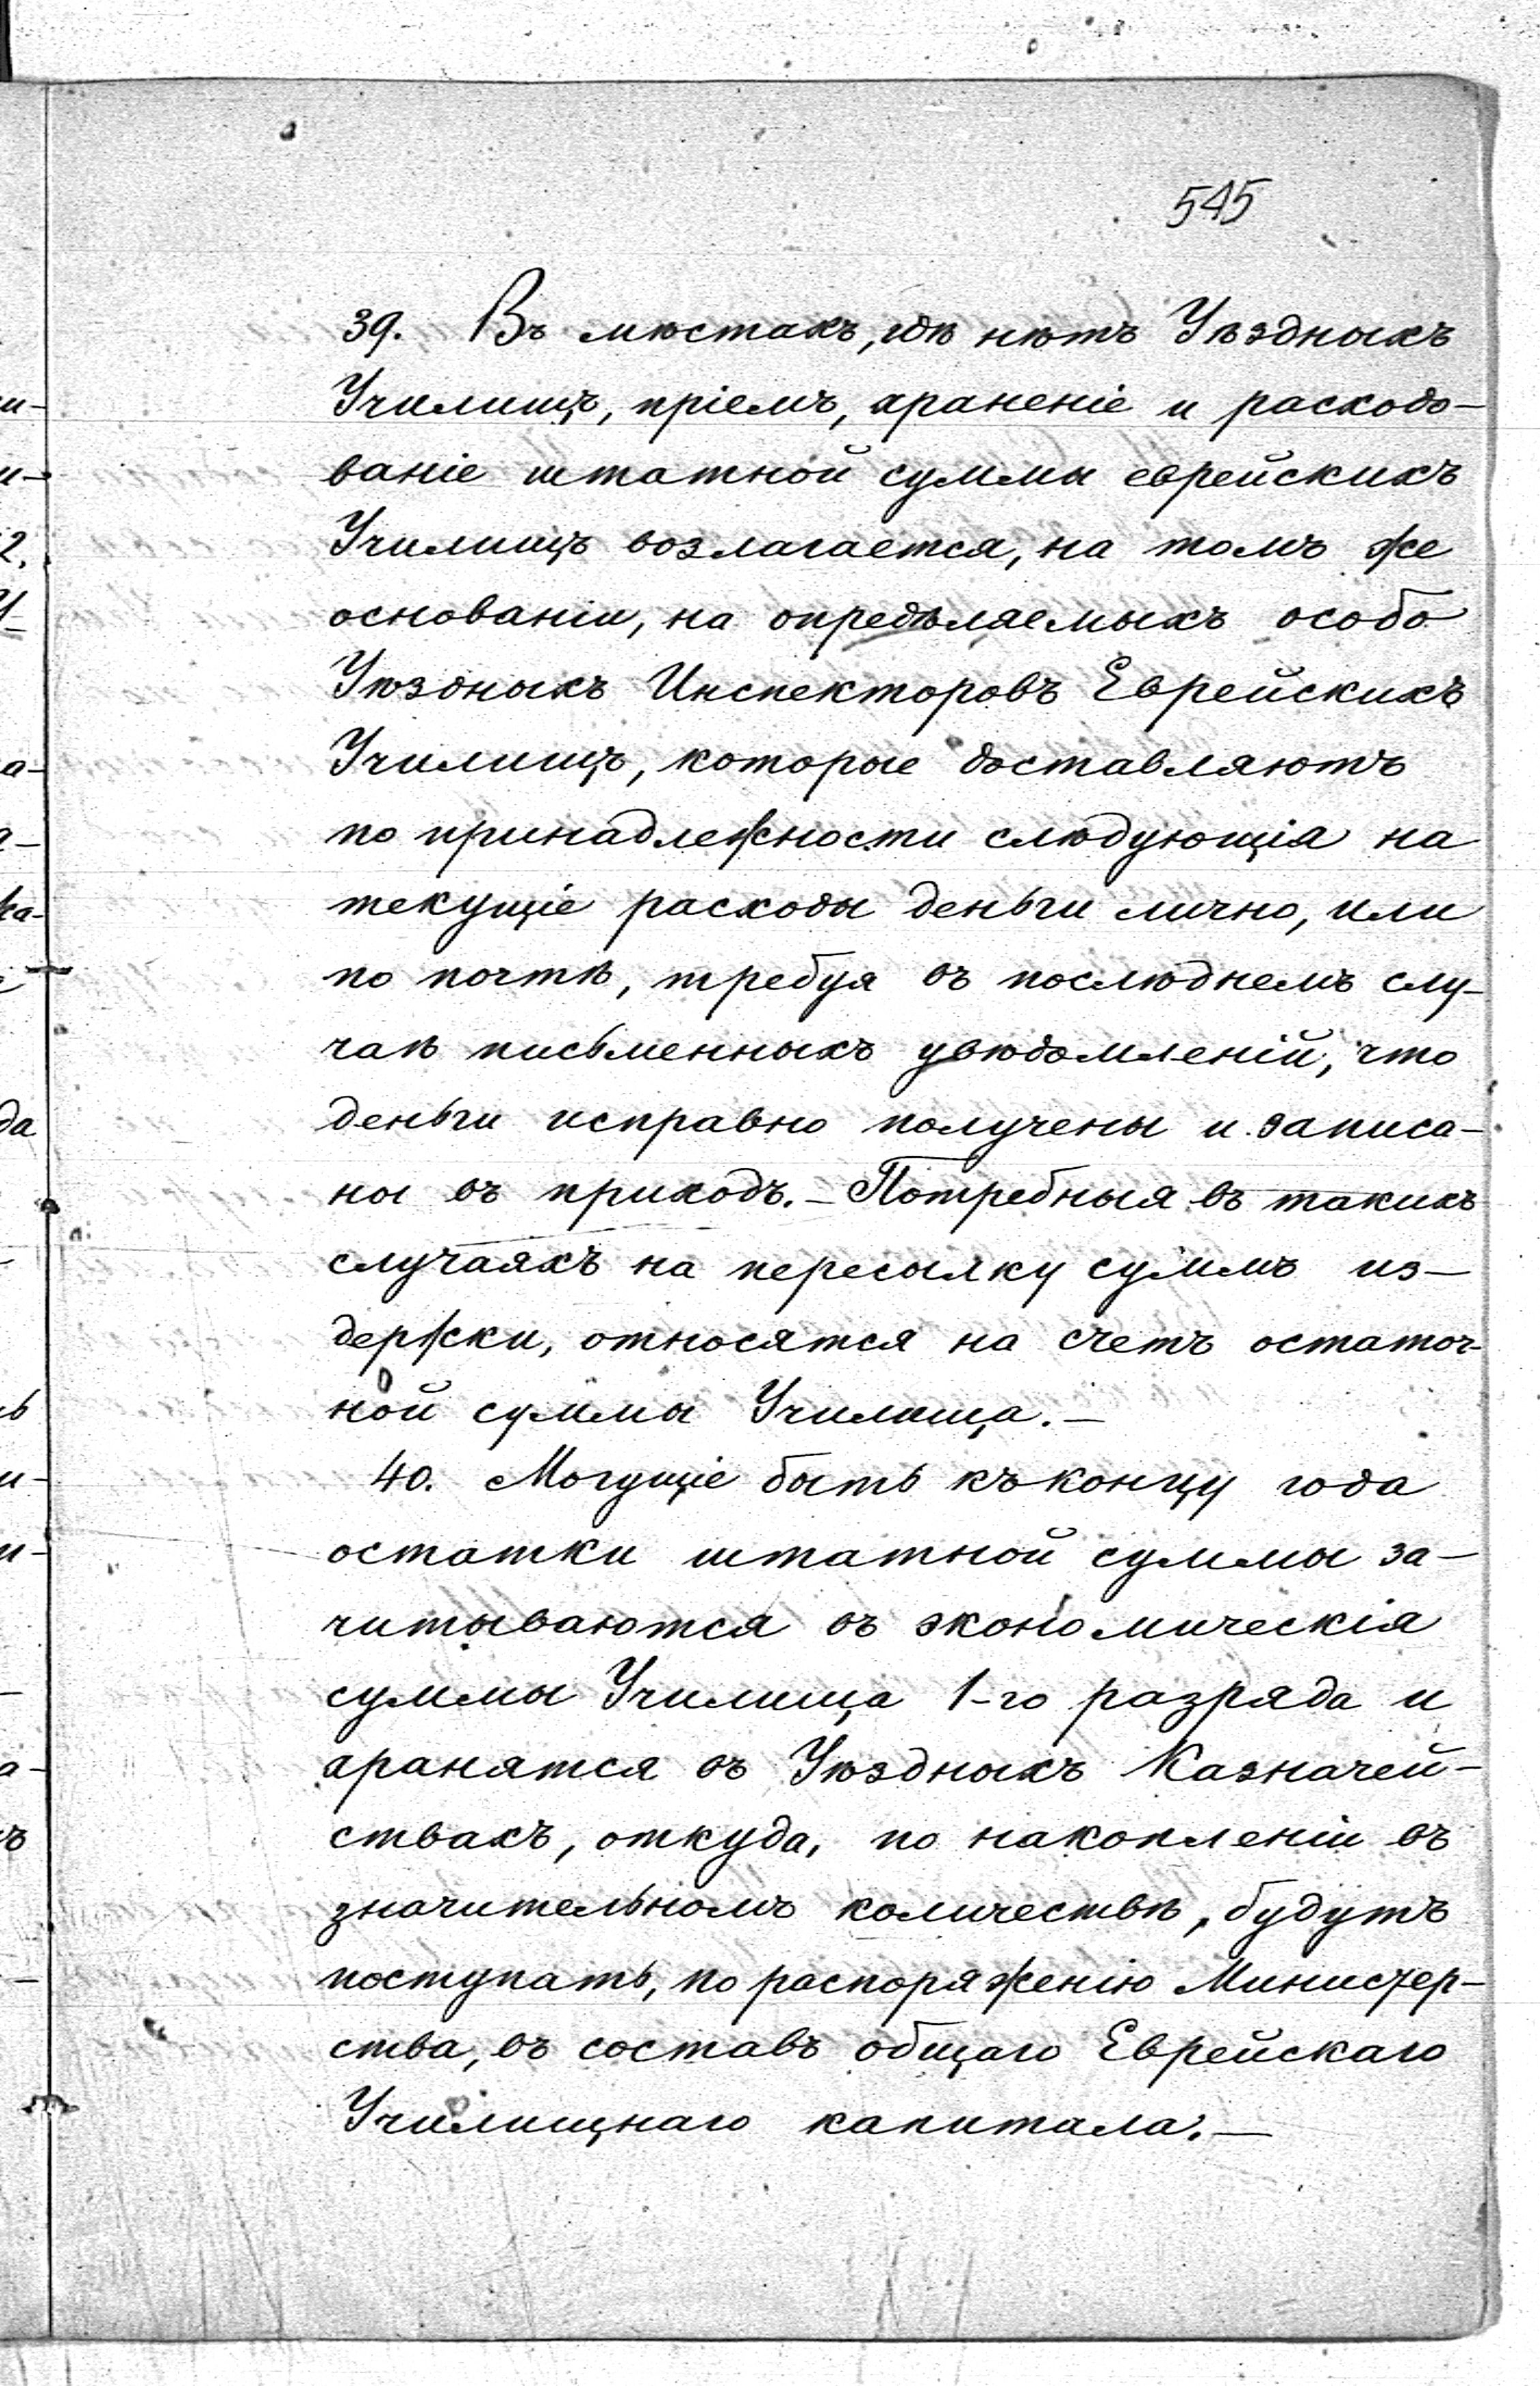 545
39. Въ мѣстахъ, гдѣ нѣтъ Уѣздныхъ
Училищъ, пріемъ, храненіе и расходо-
ваніе штатной суммы еврейскихъ
Училищъ возлагается, на томъ же
основаніи, на опредѣляемыхъ особо
Уѣздныхъ Инспекторовъ Еврейскихъ
Училищъ, которые доставляютъ
по принадлежности слѣдующія на
текущіе расходы деньги лично, или
по почтѣ, требуя въ послѣднемъ слу-
чаѣ письменныхъ увѣдомленій, что
деньги исправно получены и записа-
ны въ приходъ.- Потребныя въ такихъ
случаяхъ на пересылку суммъ из-
держки, относятся на счетъ остаточ-
ной суммы Училища.-
40. Могущіе быть къ концу года
остатки штатной суммы за-
читываются въ экономическія
суммы Училища 1-го разряда и
хранятся въ Уѣздныхъ Казначей-
ствахъ, откуда, по накопленіи въ
значительномъ количествѣ, будутъ
поступать, по распоряженію Министер-
ства, въ составъ общаго Еврейскаго
Училищнаго капитала.-